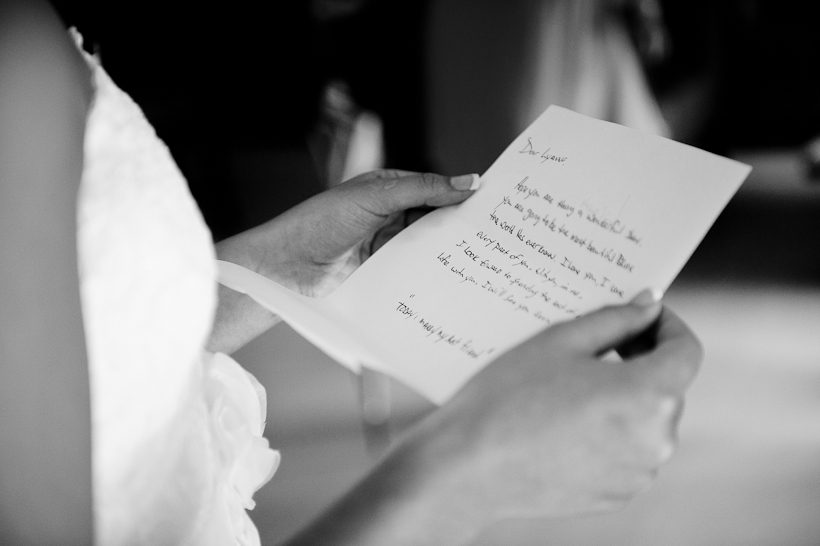 Dear
Hope you are having a wonderful time.
You are going to be the most beautiful Bride
the world has ever known. I love you, I love
every part of you.
I look forward to spending the rest of
life with you. I will see you
"Today I marry my best friend"